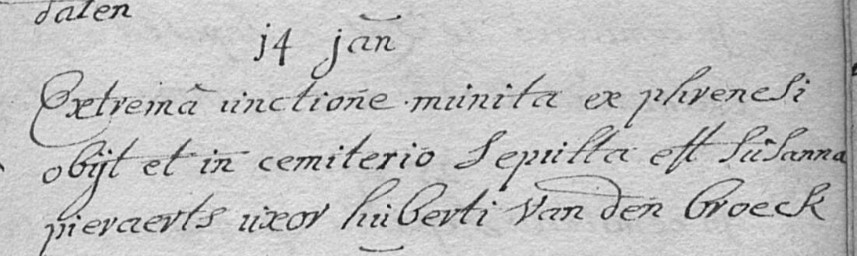 dalen
j4 jan
Extremâ unctione munita ex phrenesi
obijt et in cemiterio Sepulta est Susanna
pieraerts uxor huberti Van den broeck